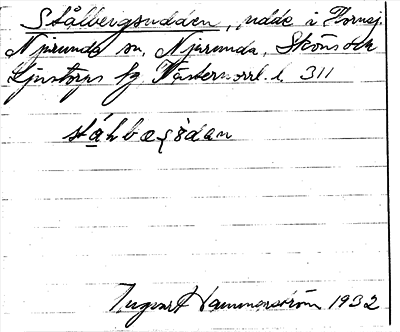 Stålbergsudden, udde i Hornsj.
Njurunda sn, Njurunda, Sköns och
Ljustorps tg Västernorrl. l. 311
Ingvart Hammarström 1932